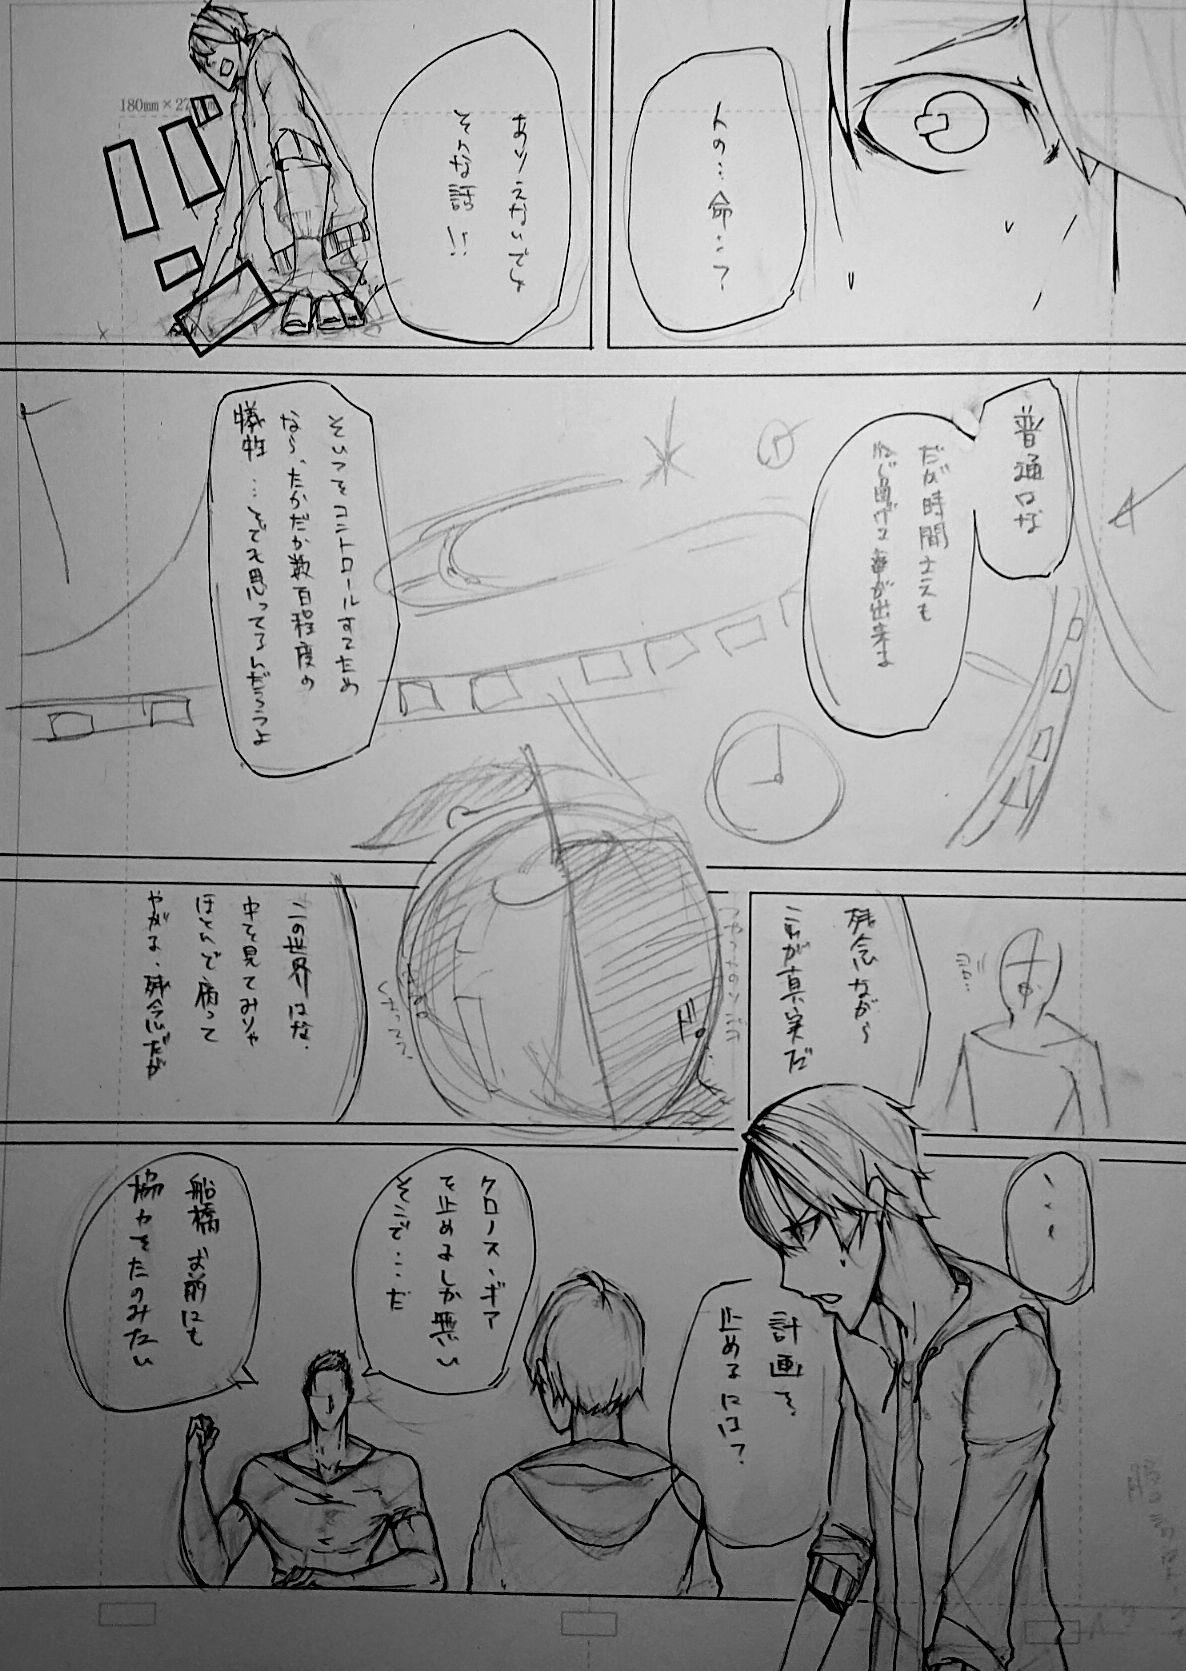 180mm×27
人の…命…？
ありえないでしょ
そんな話!!
普通はな
だが時間さえも
ねじ曲げる事が出来る
そいつをコントロールするため
なら、たかだか数百程度の
犠牲…とでも思ってるんだろうよ
残念ながら
これが真実だ
この世界はな、
中を見てみりゃ
ほとんど腐って
やがる、残念だが
ド。
、、、
計画を、
止めるには？
クロノス・ギア
を止めるしか無い
そこで…だ
船橋お前にも
協力をたのみたい